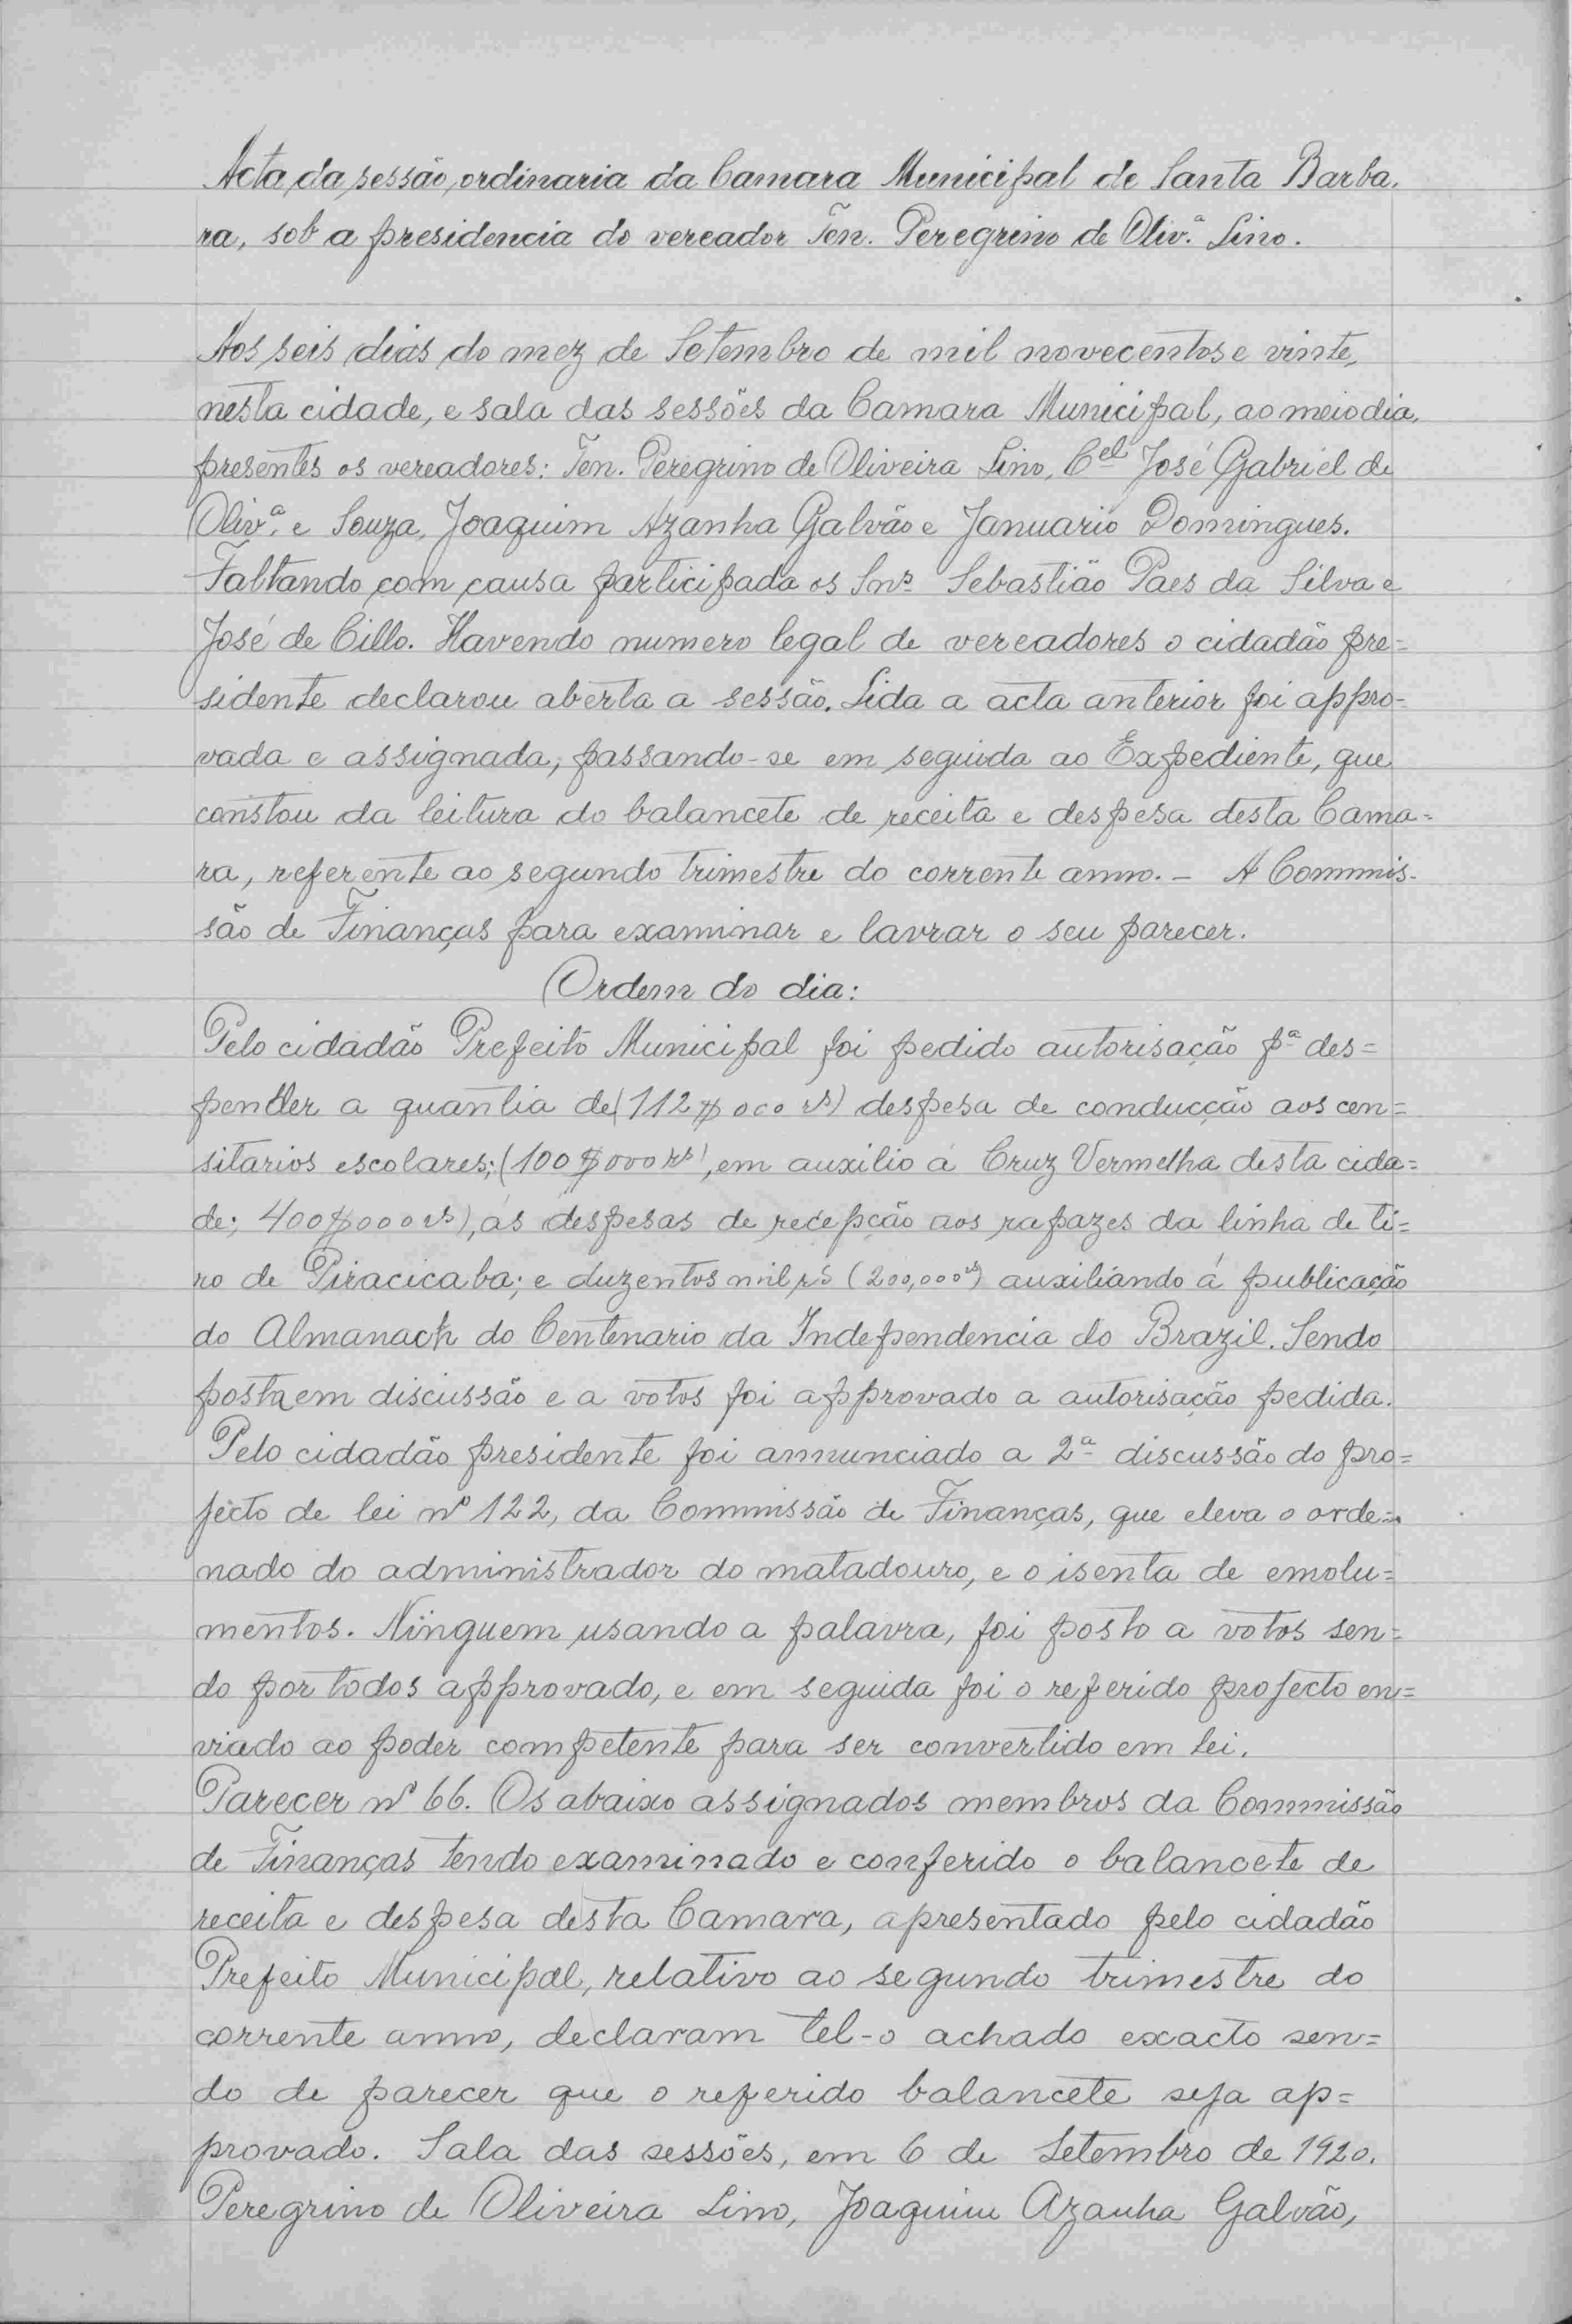 Acta da sessão, ordinaria da Camara Municipal de Santa Barba.
ra, sob a presidencia do vereador Ten. Peregrino de Oliv.ª Lino.
Aos seis dias do mez de Setembro de mil novecentos e vinte,
nesta cidade, e sala das sessões da Camara Municipal, ao meio dia,
presentes os vereadores: Ten. Peregrino de Oliveira Lino, Cel José Gabriel de
Olivª. e Souza, Joaquim Azanha Galvão e Januario Domingues.
Faltando com causa participada os Snrs Sebastião Paes da Silva e
José de Cillo. Havendo numero legal de vereadores o cidadão pre=
sidente declarou aberta a sessão. Lida a acta anterior foi appro-
vada e assignada, passando-se em seguida ao Expediente, que
constou da leitura do balancete de receita e despesa desta Cama-
ra, referente ao segundo trimestre do corrente anno. - A Commis-
são de Finanças para examinar e lavrar o seu parecer.
Ordem do dia:
Pelo cidadão Prefeito Municipal foi pedido autorisação pª des=
pender a quantia de (112$000 rs) despesa de conducção aos cen=
sitarios escolares; (100$000 rs), em auxilio á Cruz Vermelha desta cida=
de; 400$000 rs), ás despesas de recepção aos rapazes da linha de ti=
ro de Piracicaba; e duzentos mil rs (200,000rs) auxiliando á publicação
do Almanach do Centenario da Independencia do Brazil. Sendo
posta em discussão e a votos foi approvado a autorisação pedida.
Pelo cidadão presidente foi annunciado a 2ª discussão do pro=
jecto de lei nº 122, da Commissão de Finanças, que eleva o orde=
nado do administrador do matadouro, e o isenta de emolu=
mentos. Ninguem usando a palavra, foi posto a votos sen=
do por todos approvado, e em seguida foi o referido projecto en=
viado ao poder competente para ser convertido em lei.
Parecer nº 66. Os abaixo assignados membros da Commissão
de Finanças tendo examinado e conferido o balancete de
receita e despesa desta Camara, apresentado pelo cidadão
Prefeito Municipal, relativo ao segundo trimestre do
corrente anno, declaram tel-o achado exacto sen=
do de parecer que o referido balancete seja ap=
provado. Sala das sessões, em 6 de Setembro de 1920.
Peregrino de Oliveira Lino, Joaquim Azanha Galvão,